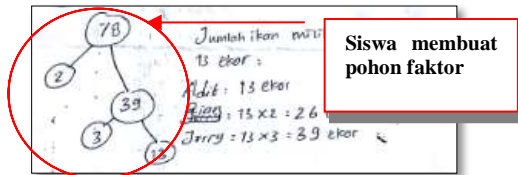 78
2
39
3
13
Jumlah ikan mili
13 ekor :
Adit : 13 ekor
: 13 x 2 = 26
Jerry : 13 x 3 = 39 ekor
Siswa membuat
pohon faktor